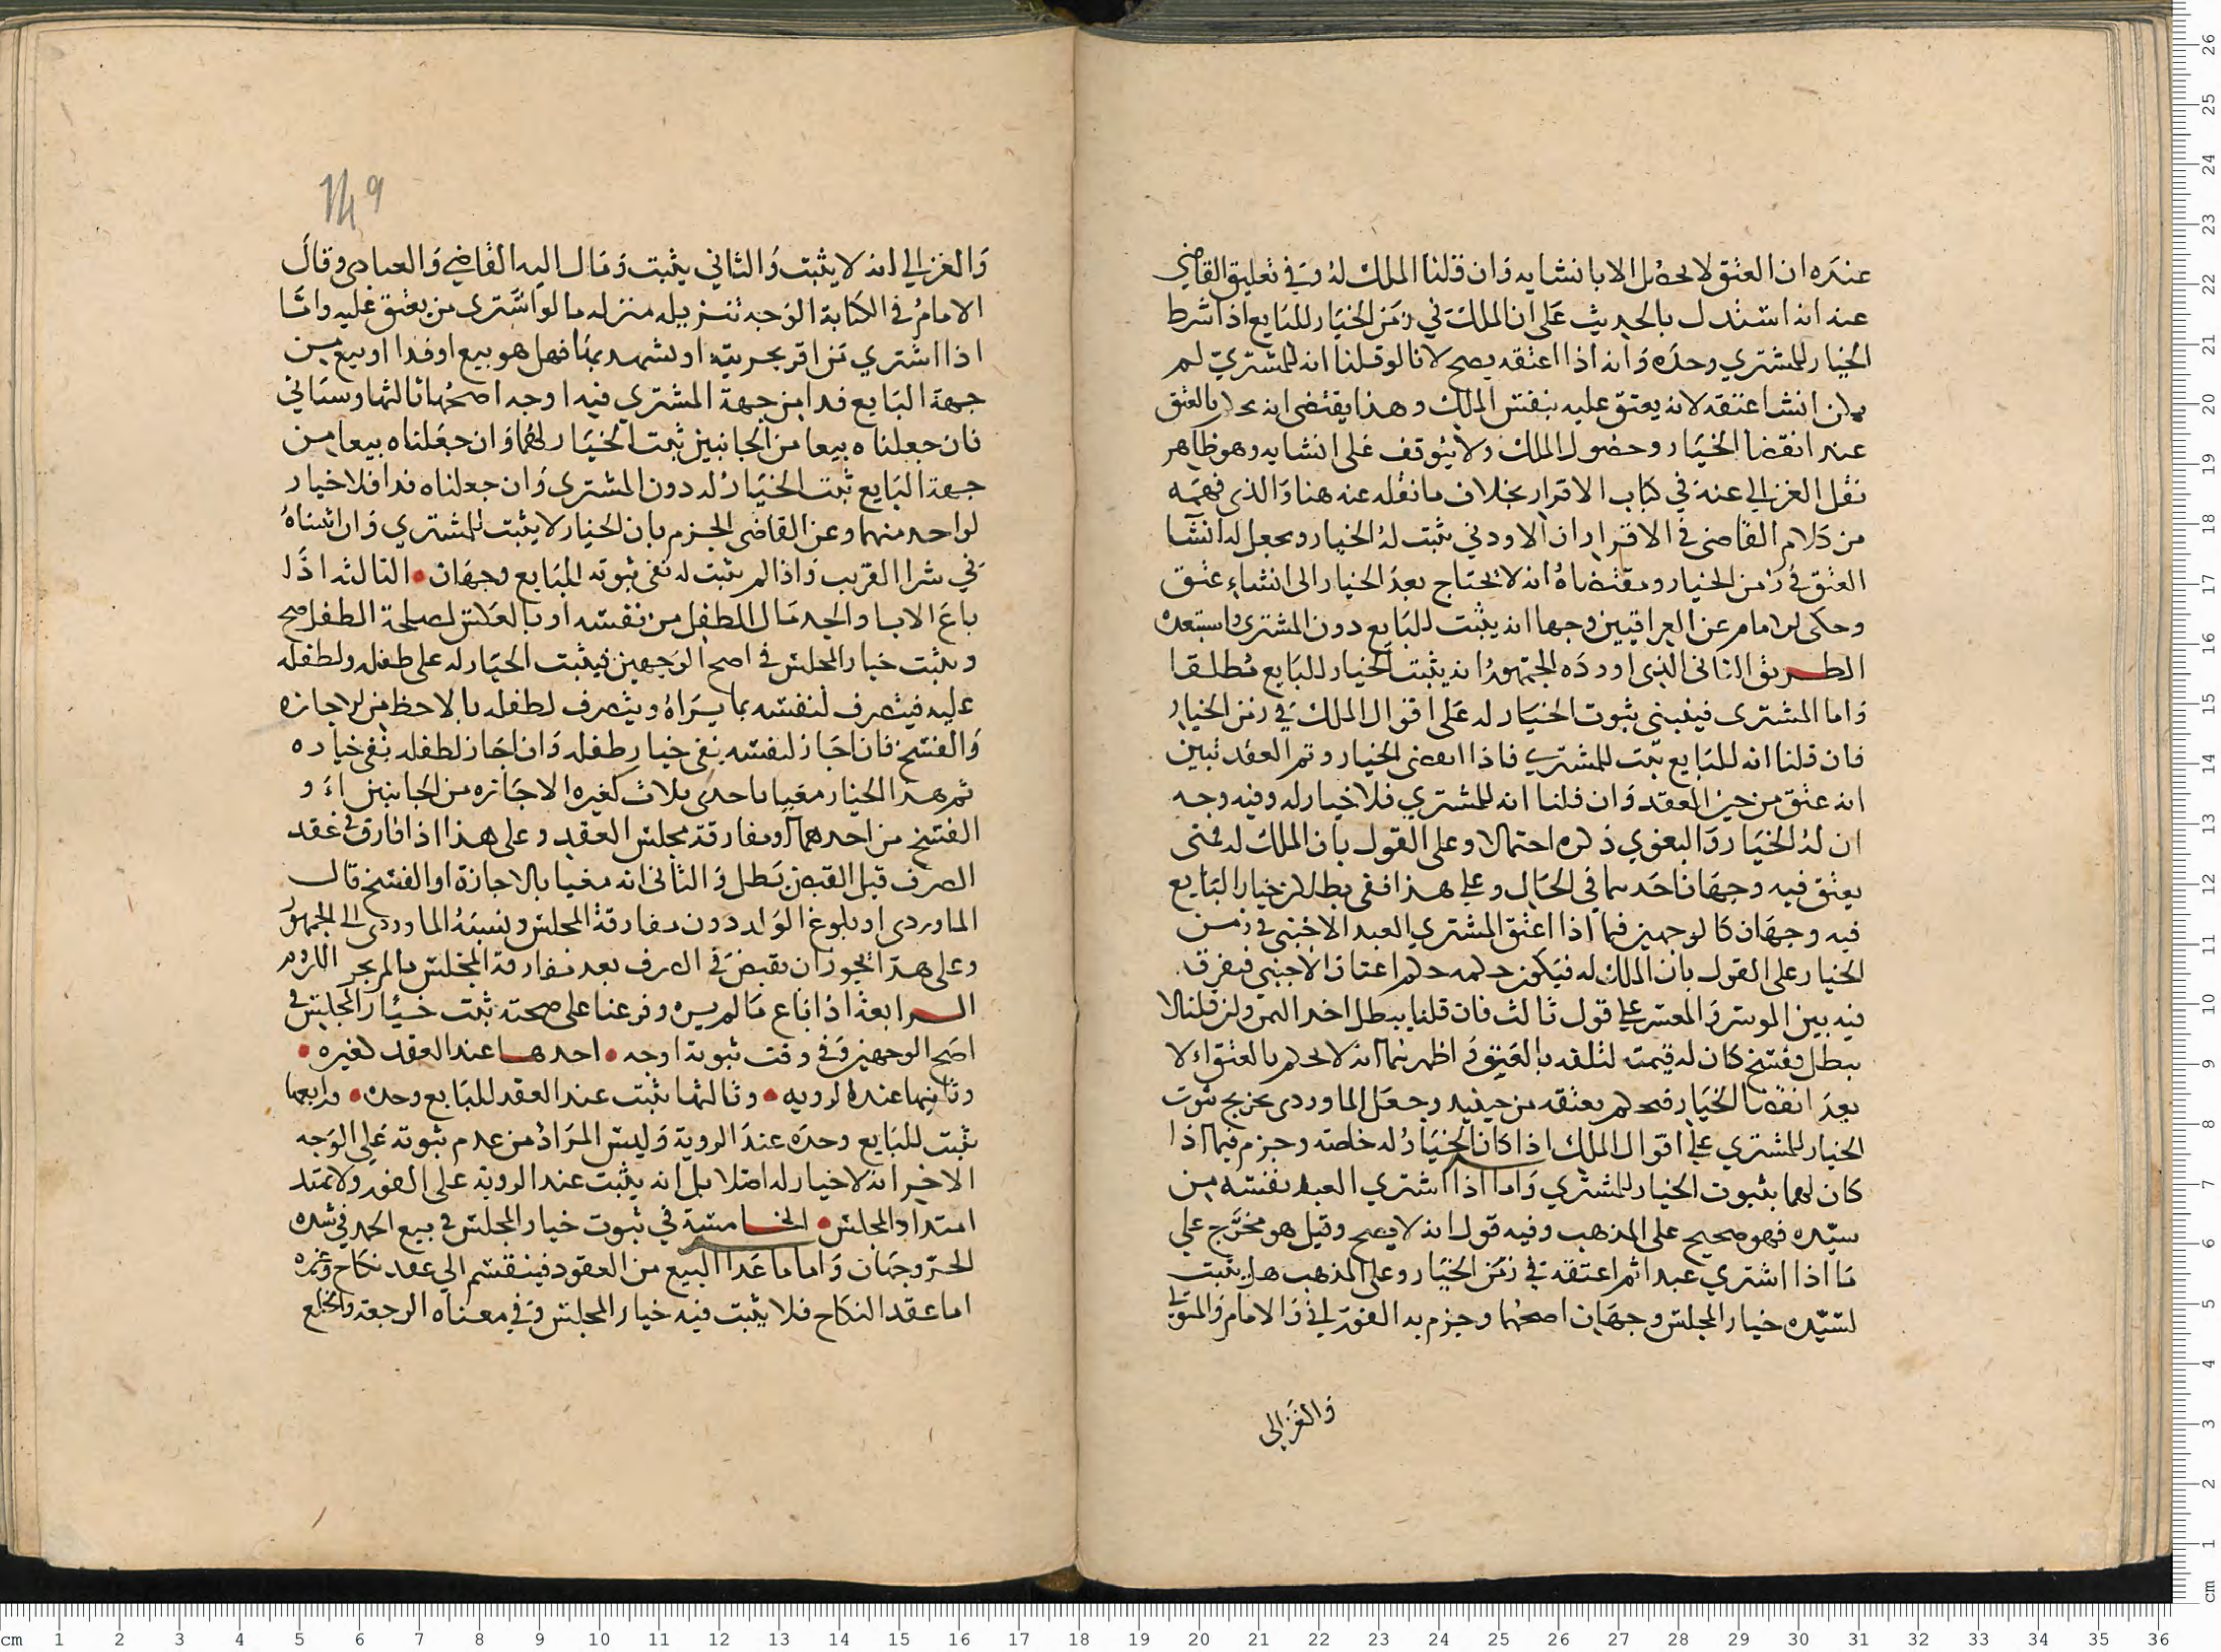 عنده ان العتق لا يحصل الا بانشايه وان قلنا الملك له وفي تعليق القاضي
عنه انه استدل بالحديث على ان الملك في زمن الخيار للبايع اذا شرط
الخيار للمشتري وحده وانه اذا اعتقه يصح لانا لو قلنا انه للمشتري لم
يكن انشا عتقه لانه يعتق عليه بنفس الملك وهذا يقتضي انه يحكم بالعتق
عند انقضا الخيار وحصول الملك ولا يتوقف على انشايه وهو ظاهر
نقل الغزالي عنه في كتاب الاقرار بخلاف ما نقله عنه هنا والذي فهمه
من كلام القاضي في الاقرار ان الاودني يثبت له الخيار ويجعل له انشا
العتق في زمن الخيار ومقتضاه انه لا يحتاج بعد الخيار الى انشاء عتق
وحكى الامام عن العراقيين وجها انه يثبت للبايع دون المشتري واستبعده
الطريق الثاني الذي اورده الجمهور انه يثبت الخيار للبايع مطلقا
واما المشتري فينبني ثبوت الخيار له على اقوال الملك في زمن الخيار
فان قلنا انه للبايع ثبت للمشتري فاذا انقضى الخيار وتم العقد تبين
انه عتق من حين العقد وان قلنا انه للمشتري فلا خيار له وفيه وجه
ان له الخيار والبغوي ذكره احتمالا وعلى القول بان الملك له فمتى
يعتق فيه وجهان احدهما في الحال وعلى هذا ففي بطلان خيار البايع
فيه وجهان كالوجهين فيما اذا اعتق المشتري العبد الاجنبي في زمن
الخيار على القول بان الملك له فيكون حكمه حكم اعتاق الاجنبي فيفرق
فيه بين الموسر والمعسر على قول ثالث فان قلنا يبطل اخد الثمن وان قلنا لا
يبطل وفسخ كان له قيمته لتلفه بالعتق واظهرهما انه لا يحكم بالعتق الا
بعد انقضا الخيار فيحكم بعتقه من حينيد وجعل الماوردي تخريج ثبوت
الخيار للمشتري على اقوال الملك اذا كان الخيار له خاصة وجزم فيما اذا
كان لهما بثبوت الخيار للمشتري واما اذا اشتري العبد نفسه من
سيده فهو صحيح على المذهب وفيه قول انه لا يصح وقيل هو مخرج على
ما اذا اشتري عبدا ثم اعتقه في زمن الخيار وعلى المذهب هل يثبت
لسيده خيار المجلس وجهان اصحهما وجزم به الفوراني والامام والمتولي
والغزالي
149
والغزالي انه لا يثبت والثاني يثبت ومال اليه القاضي والعبادي وقال
الامام في الكتابة الوجه تنزيله منزله ما لو اشترى من يعتق عليه واما
اذا اشتري من اقر بحريته او شهد بها فهل هو بيع او فدا او بيع من
جهة البايع فدا من جهة المشتري فيه اوجه اصحها ثالثها وستاتي
فان جعلناه بيعا من الجانبين ثبت الخيار لهما وان جعلناه بيعا من
جهة البايع ثبت الخيار له دون المشتري وان جعلناه فدا فلا خيار
لواحد منهما وعن القاضي الجزم بان الخيار لا يثبت للمشتري وان اثبتناه
في شرا القريب واذا لم يثبت له ففي ثبوته للبايع وجهان • الثالثه اذا
باع الاب او الجد مال الطفل من نفسه او بالعكس لمصلحة الطفل صح
ويثبت خيار المجلس في اصح الوجهين فيثبت الخيار له على طفله ولطفله
عليه فيتصرف لنفسه بما يراه ويتصرف لطفله بالاحظ من الاجازه
والفسخ فان اجاز لنفسه بقي خيار طفله وان اجاز لطفله بقي خياره
ثم هذا الخيار مغيا باحدى بثلاث كغيره الاجازه من الجانبين او
الفسخ من احدهما او مفارقة مجلس العقد وعلى هذا اذا فارق في عقد
الصرف قبل القبض بطل والثاني انه مغيا بالاجازة او الفسخ قال
الماوردي او بلوغ الولد دون مفارقة المجلس ونسبه الماوردي الى الجمهور
وعلى هذا يجوز ان يقبض في الصرف بعد مفارقة المجلس ما لم يجر اللزوم
الرابعة اذا باع ما لم يره وفرعنا على صحته ثبت خيار المجلس في
اصح الوجهين وفي وقت ثبوته اوجه • احدها عند العقد كغيره •
وثانيها عند الرويه • وثالثها يثبت عند العقد للبايع وحده • ورابعها
يثبت للبايع وحده عند الروية وليس المراد من عدم ثبوته على الوجه
الاخير انه لا خيار له اصلا بل انه يثبت عند الروية على الفور ولا يمتد
امتداد المجلس • الخامسة في ثبوت خيار المجلس في بيع الجمد في شدة
الحر وجهان واما ما عدا البيع من العقود فينقسم الي عقد نكاح وغيره
اما عقد النكاح فلا يثبت فيه خيار المجلس وفي معناه الرجعة والخلع